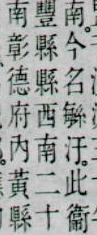 南。今名緐汙。此衞
豐縣縣西南二十
南彰德府內黃縣